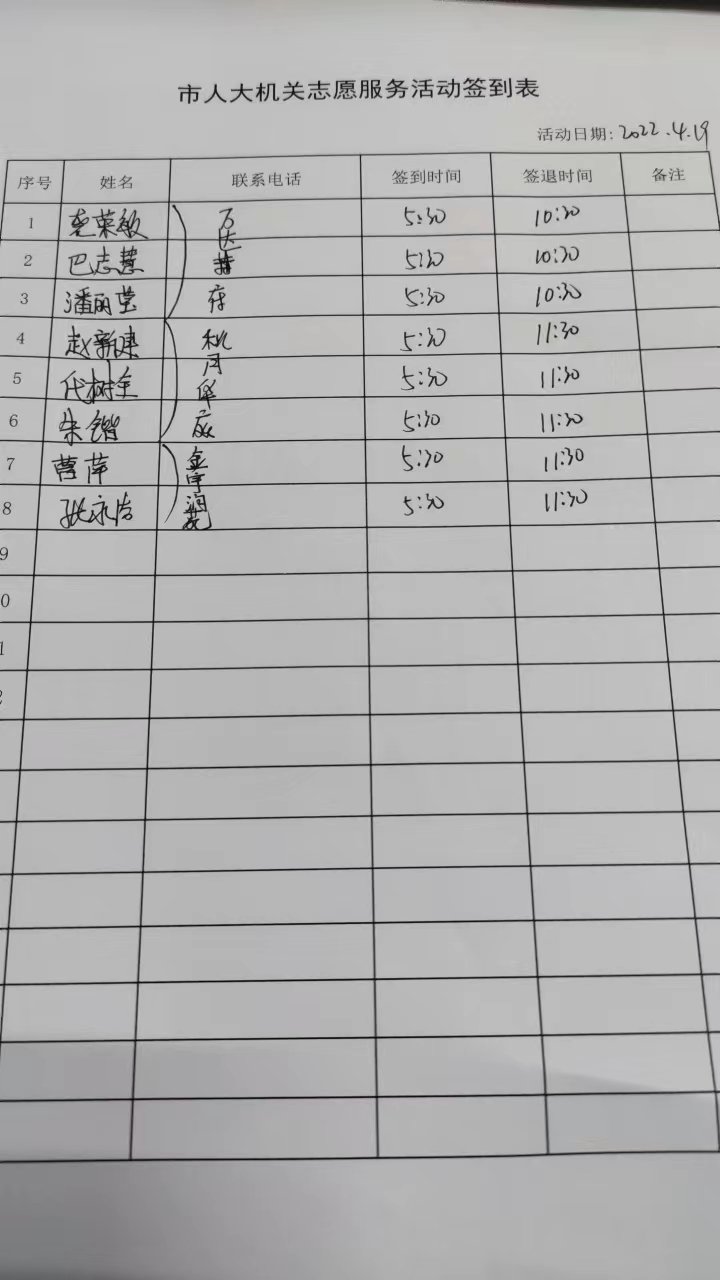 市人大机关志愿服务活动签到表
活动日期: 2022.4.19
序号 姓名 联系电话 签到时间 签退时间 备注
1 荣敏 万 5:30 10:30
2 巴志慧 达 5:30 10:30
3 潘丽莹 府 5:30 10:30
4 赵新建 机 5:30 11:30
5 代树全 月 华 5:30 11:30
6 朱锴 5:30 11:30
7 曹萍 金 5:30 11:30
8 张永浩 润 苑 5:30 11:30
9
0
1
2